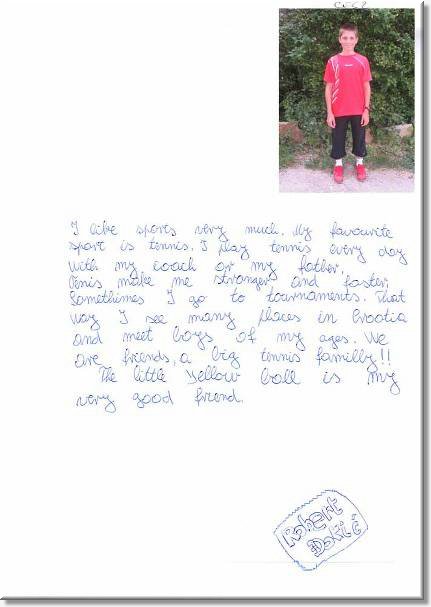 I like sports very much. My favourite
sport is tennis. I play tennis every day
with my coach or my father.
Tenis make me stronger and faster.
Somethimes I go to tournaments. That
way I see many places in Croatia
and meet boys of my ages. We
are friends, a big tennis familly!!
The little yellow ball is my
very good friend.
Robert
Đokić